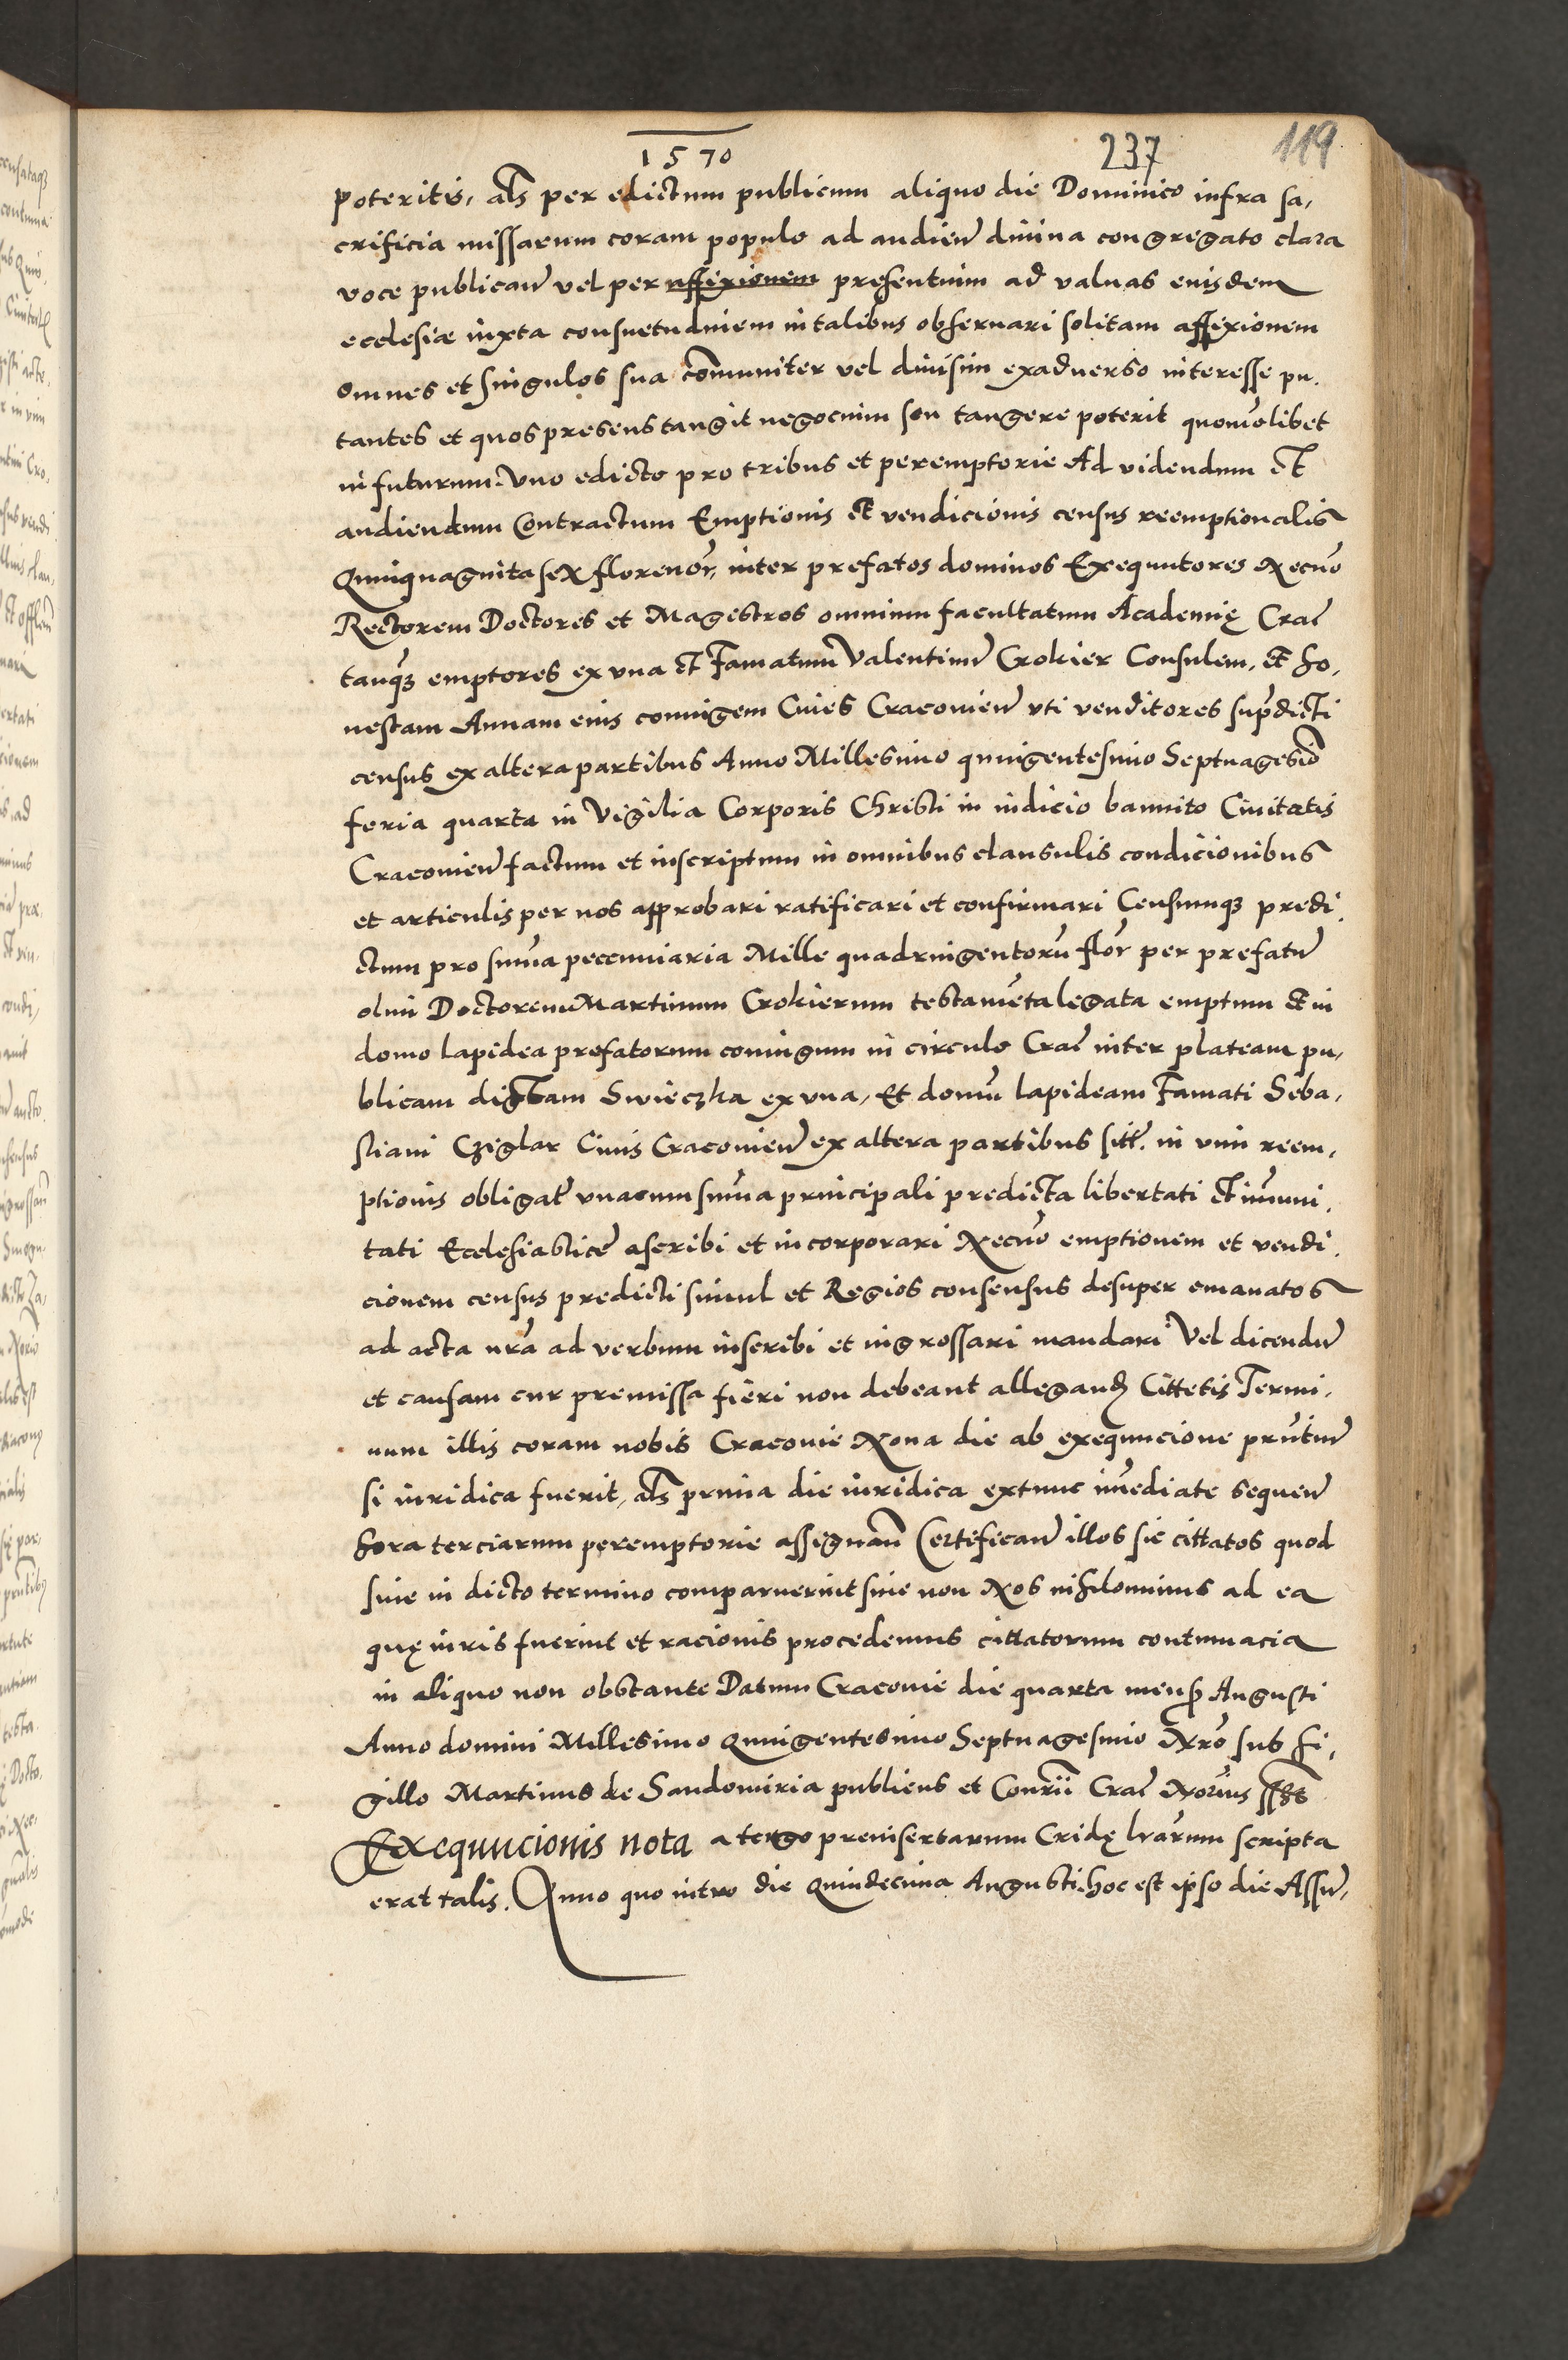 1570
237
119
poteritis, als per edictum publicum aliquo die Dominico infra sa,
crificia missarum coram populo ad audien diuina congregato clara
voce publican vel per affixionem presentium ad valuas eiusdem
ecclesiæ iuxta consuetudinem in talibus obseruari solitam affixionem
omnes et singulos sua cõmuniter vel diuisim exaduerso interesse pu,
tantes et quos presens tangit negocium seu tangere poterit quomõlibet
in futurum. Vno edicto pro tribus et peremptorie Ad videndum et
audiendum Contractum Emptionis et vendicionis census reemptionalis
Quinquaginta sex florenor, inter prefatos dominos Exequutores Necnõ
Rectorem Doctores et Magistros omnium facultatum Academię Crac
tanq̃ emptores ex vna et Famatum Valentinũ Crokier Consulem, et ho,
nestam Annam eius coniugem Ciues Cracouien vti venditores supradicti
census ex altera partibus Anno Millesimo quingentesimo Septuagesiõ
feria quarta in Vigilia Corporis Christi in iudicio bannito Ciuitatis
Cracouien factum et inscriptum in omnibus clausulis condicionibus
et articulis per nos approbari ratificari et confirmari Censumq predi,
ctum pro sum̃a pecunniaria Mille quadringentorũ flor per prefatũ
olim Doctorem Martinum Crokierum testamẽta legata emptum et in
domo lapidea prefatorum coniugum in circulo Crac inter plateam pu,
blicam dictam Swieczka ex vna, Et domũ lapideam Famati Seba,
stiani Cziglar Ciuis Cracouien ex altera partibus sitt. in vim reem,
ptionis obligat vnacum sum̃a principali predicta libertati et im̃uni,
tati Ecclesiasticẽ ascribi et incorporari Necnõ emptionem et vendi,
cionem census predicti simul et Regios consensus desuper emanatos
ad acta nr̃a ad verbum inscribi et ingrossari mandari Vel dicendũ
et causam cur premissa fieri non debeant allegand Cittetis Termi,
num illis coram nobis Cracouie Nona die ab exequucione prñtiũ
si iuridica fuerit, als prima die iuridica extunc im̃ediate sequen
hora terciarum peremptorie assignan Certifican illos sic cittatos quod
siue in dicto termino comparuerint siue non Nos nihilominus ad ea
quę iuris fuerint et racionis procedemus cittatorum contumacia
in aliquo non obstante Datum Cracouie die quarta mens Augusti
Anno domini Millesimo Quingentesimo Septuagesimo Nrõ sub si,
gillo Martinus de Sandomiria publicus et Conrii Crac Notarius sst
Exequucionis nota a tergo preinsertarum Cridę lrarum scripta
erat talis. Anno quo intro die Quindecima Augusti hoc est ipso die Assũ,